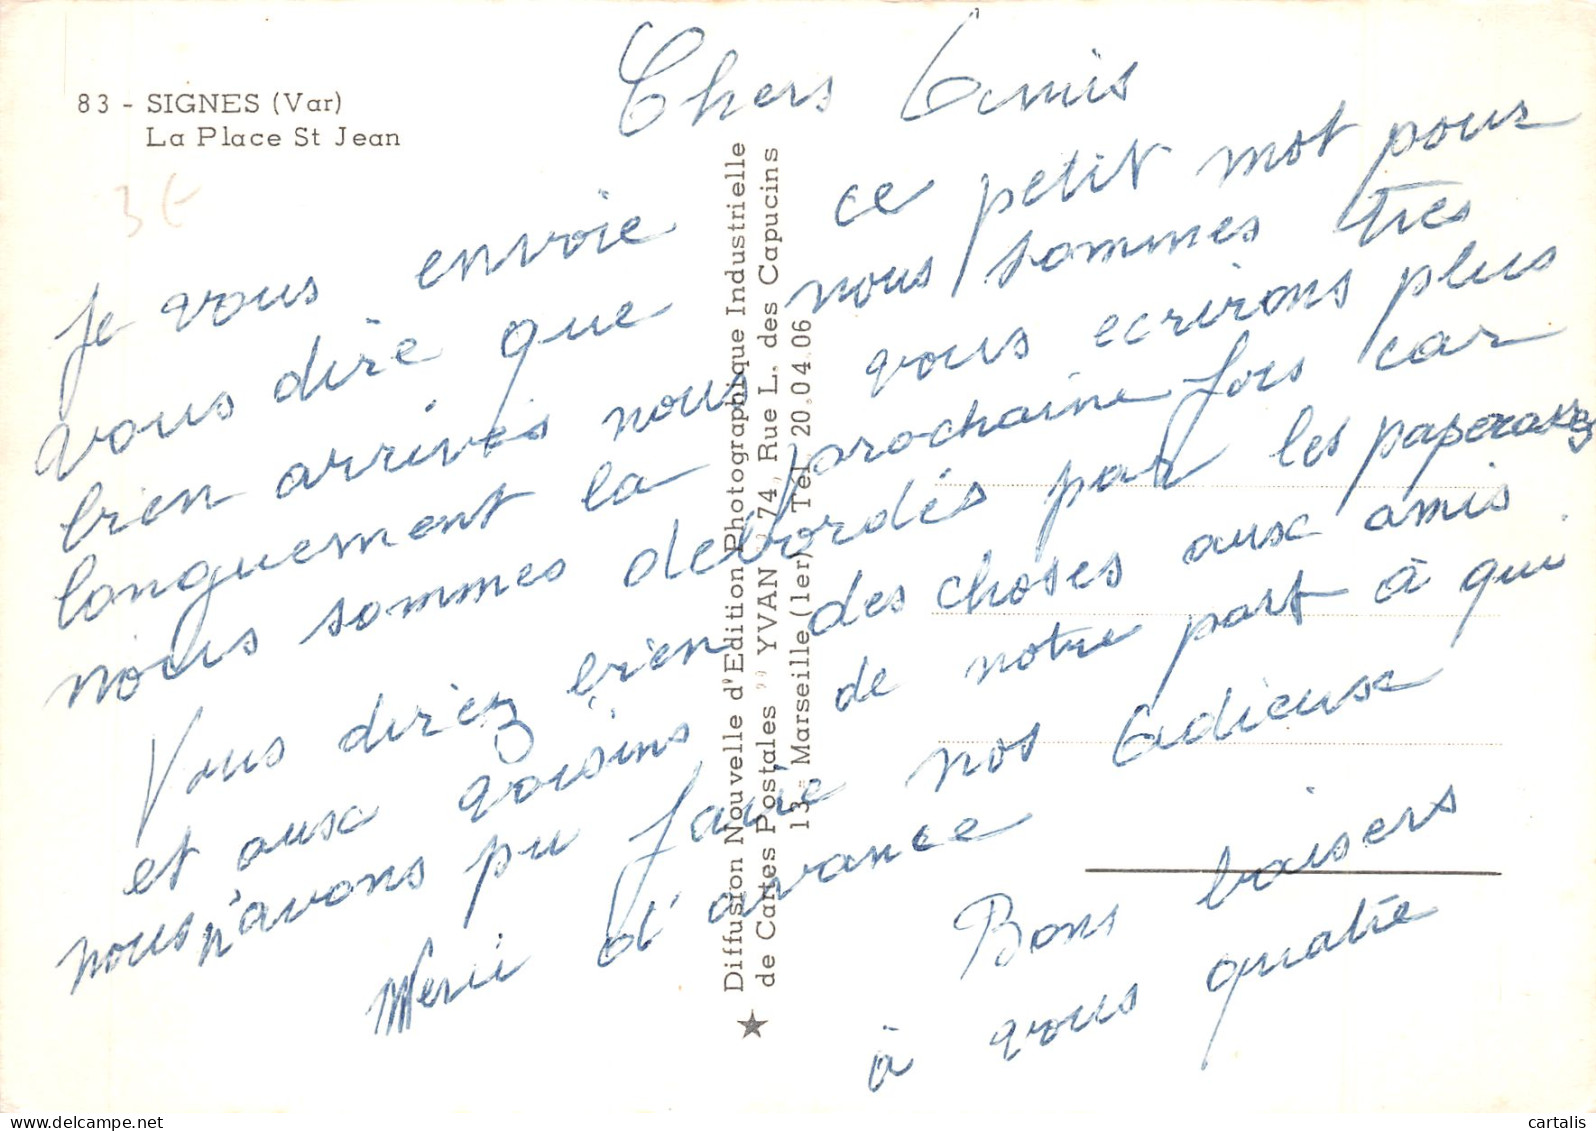 83 - SIGNES (Var)
La Place St Jean
3€
Chers Amis
Je vous envoie ce petit mot pour
vous dire que nous sommes très
bien arrivés nous vous ecrirons plus
longuement la prochaine fois car
nous sommes debordés par les paperasses
Vous direz bien des choses aux amis
et aux voisins de notre part à qui
nous n'avons pu faire nos Adieux
Merci d'avance
Bons baisers
à vous quatre
Diffusion Nouvelle d'Edition Photographique Industrielle
de Cartes Postales " YVAN " 74, Rue L. des Capucins
13 - Marseille (1er) Tél. 20.04.06
cartalis